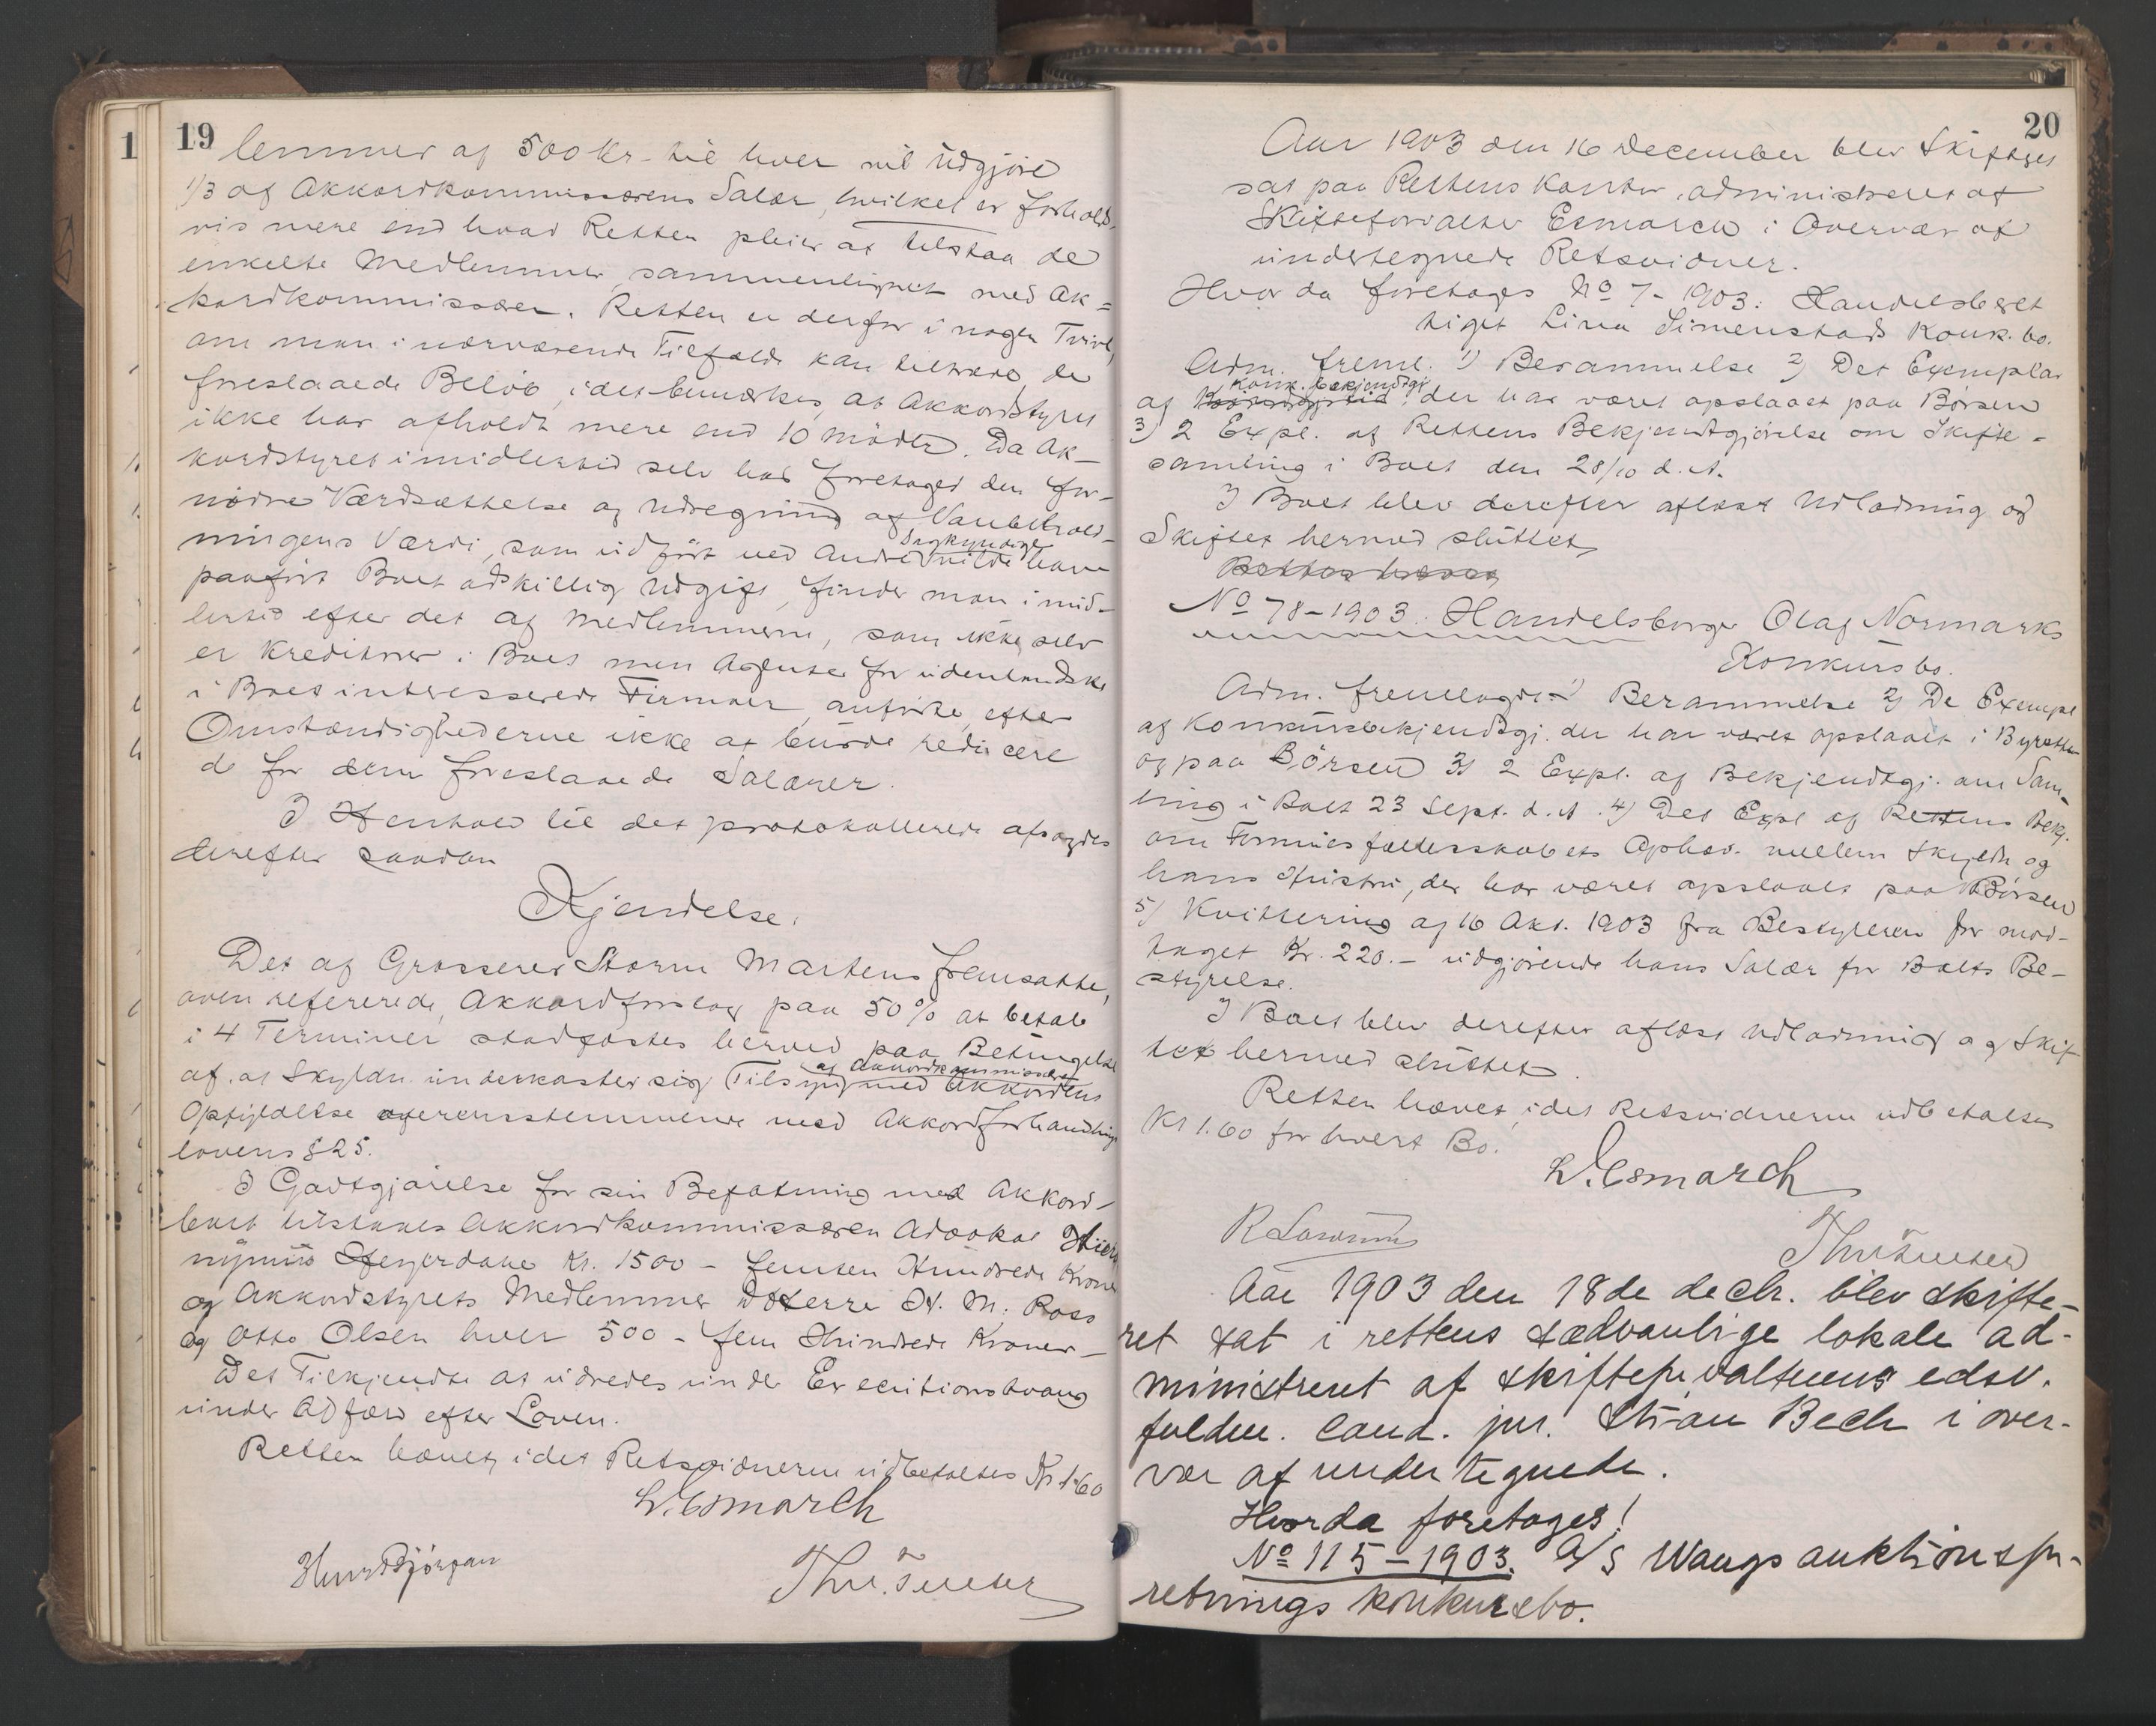 19
lemmer af 500 Kr. til hver vil udgjöre
1/3 af Akkordkommissærens Salær, hvilket er forholds-
vis mere end hvad Retten pleier at tilstaa de
enkelte Medlemmer, sammenlignet med Ak=
kordkommissæren. Retten er derfor i nogen Tvivl,
om man i nærværende Tilfælde kan tilstaa de
foreslaaede Belöb, idet bemærkes, at Akkordstyret
ikke har afholdt mere end 10 Möder. Da Ak-
kordstyret imidlertid selv har foretaget den for-
nödne Værdsættelse og Udregning af Varebehold-
ningens Værdi, som udfört ved andre Sagkyndige vilde have
paafört Boet adskillig Udgift, finder man imid-
lertid efter det af Medlemmerne, som ikke selv
er Kreditorer i Boet men Agenter for udenlandske
i Boet interesserede Firmaer, anförte, efter
Omstændighederne ikke at burde reducere
de for dem foreslaaede Salærer.
I Henhold til det protokollerede afsagdes
derefter saadan
Kjendelse.
Det af Grosserer Storm Martens fremsatte,
oven refererede, Akkordforslag paa 50% at betale
i 4 Terminer stadfæstes herved paa Betingelse
af at Skyldn. underkaster sig Tilsyn af Akkordkommissæren med Akkordens
Opfyldelse overensstemmende med Akkordforhandlings
lovens § 25.
I Godtgjörelse for sin Befatning med Akkord-
boet tilstaaes Akkordkommissæren Advokat Hiero
nymus Heyerdahl Kr. 1500 - femten Hundrede Kroner
og Akkordstyrets Medlemmer D'Herrer N. M. Ross
og Otto Olsen hver 500 - fem Hundrede Kroner -
Det Tilkjendte at udredes under Executionstvang
under Adfærd efter Loven.
Retten hævet, idet Retsvidnerne udbetaltes Kr 1.60
L. Esmarch
20
Aar 1903 den 16 December blev Skifteret
sat paa Rettens Kontor, administreret af
Skifteforvalter Esmarch i Overvær af
undertegnede Retsvidner.
Hvor da foretoges No 7-1903: Handelsberet
tiget Lina Simenstads Konk. bo.
Adm. freml. 1) Berammelse 2) Det Exemplar
af Konk.bekjendtgj. der har været opslaaet paa Börsen
3) 2 Expl. af Rettens Bekjendtgjörelse om Skifte-
samling i Boet den 28/10 d. A.
I Boet blev derefter aflæst Udlodning og
Skiftet hermed sluttet,
Retten hævet
No 78-1903. Handelsborger Olaf Normarks
Konkursbo.
Adm. fremlagde 1) Berammelse 2) De Exempl
af Konkursbekjendtgj. der har været opslaaet i Byretten
og paa Börsen 3) 2 Expl. af Bekjendtgj. om Sam-
ling i Boet 23 Sept. d. A. 4) Det Expl af Rettens Bekj.
om Formuesfællesskabets Ophör mellem Skyldn og
hans Hustru, der har været opslaaet paa Börsen
5) Kvittering af 16 Okt. 1903 fra Bestyreren for mod-
taget Kr. 220.- udgjörende hans Salær for Boets Be-
styrelse.
I Boet blev derefter aflæst Udlodning og Skif
tet hermed sluttet.
Retten hævet, idet Retsvidnerne udbetaltes
Kr 1.60 for hvert Bo.
L. Esmarch
Aar 1903 den 18de decbr. blev skifte-
ret sat i rettens sædvanlige lokale ad-
ministreret af skifteforvalterens edsv.
fuldm. cand. jur. Stian Bech i over-
vær af undertegnede.
Hvorda foretoges!
No 115-1903. A/S Wangs auktionsfor-
retnings konkursbo.